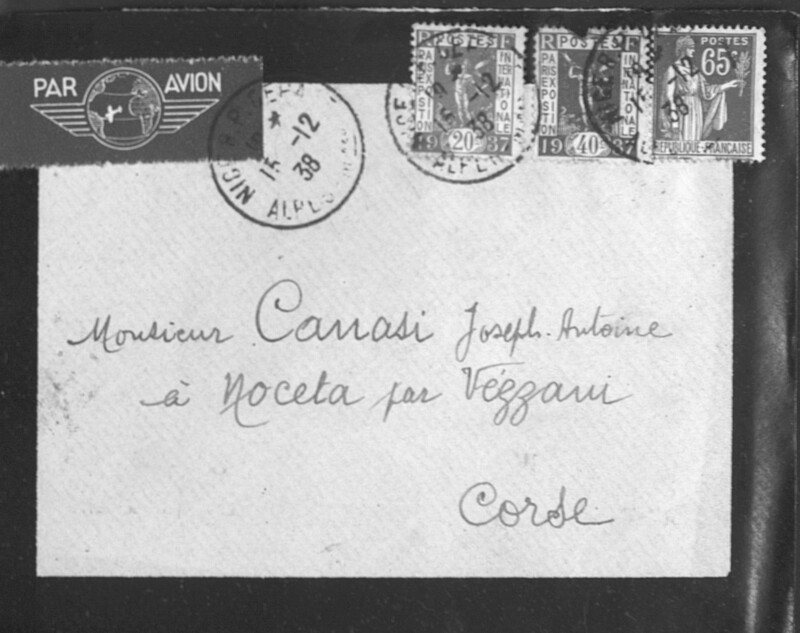 PAR AVION
NICE R.P. DEPART
15 -12
38
ALPES MMES
RF POSTES
PARIS EXPOSITION INTERNATIONALE
1937
20c
NICE
15 -12
38
RF POSTES
PARIS EXPOSITION INTERNATIONALE
1937
40c
NICE R.P.
15 -12
38
POSTES
65c
REPUBLIQUE-FRANÇAISE
Monsieur Canasi Joseph-Antoine
à Noceta par Vézzani
Corse